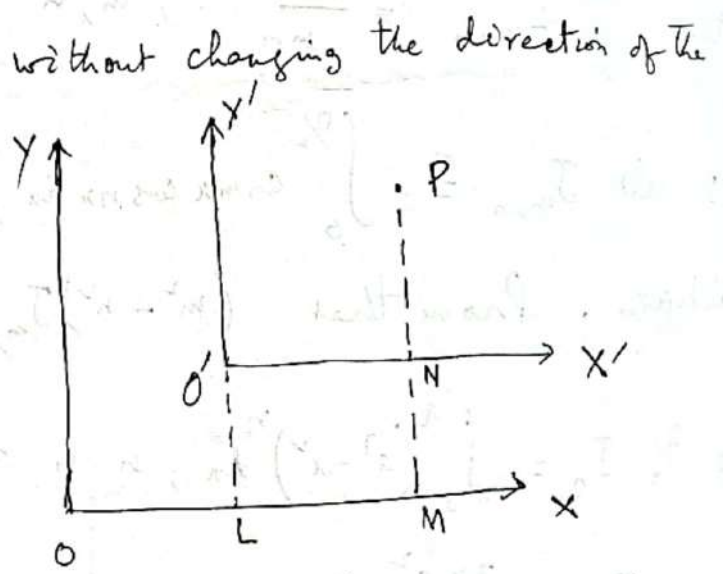 without changing the direction of the
Y
Y'
P
O'
N
X'
O
L
M
X